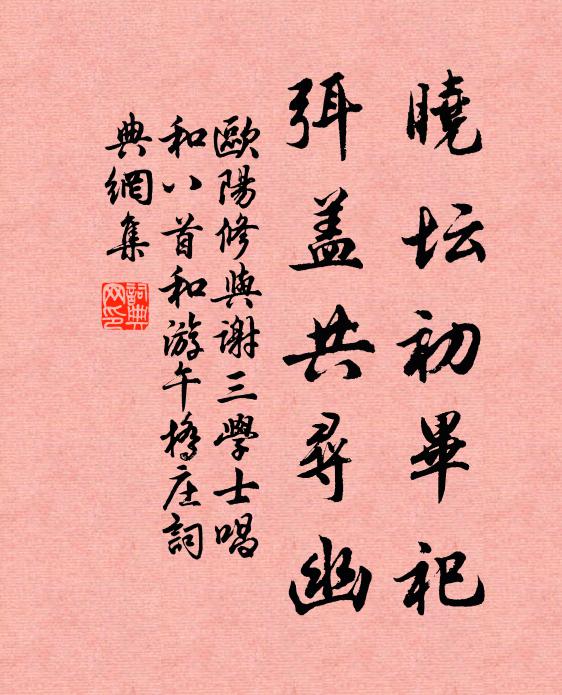 曉坛初畢祀
弭盖共尋幽
歐陽修與谢三學士唱
和八首和游午橋庄詞
典網集
詞典
网印